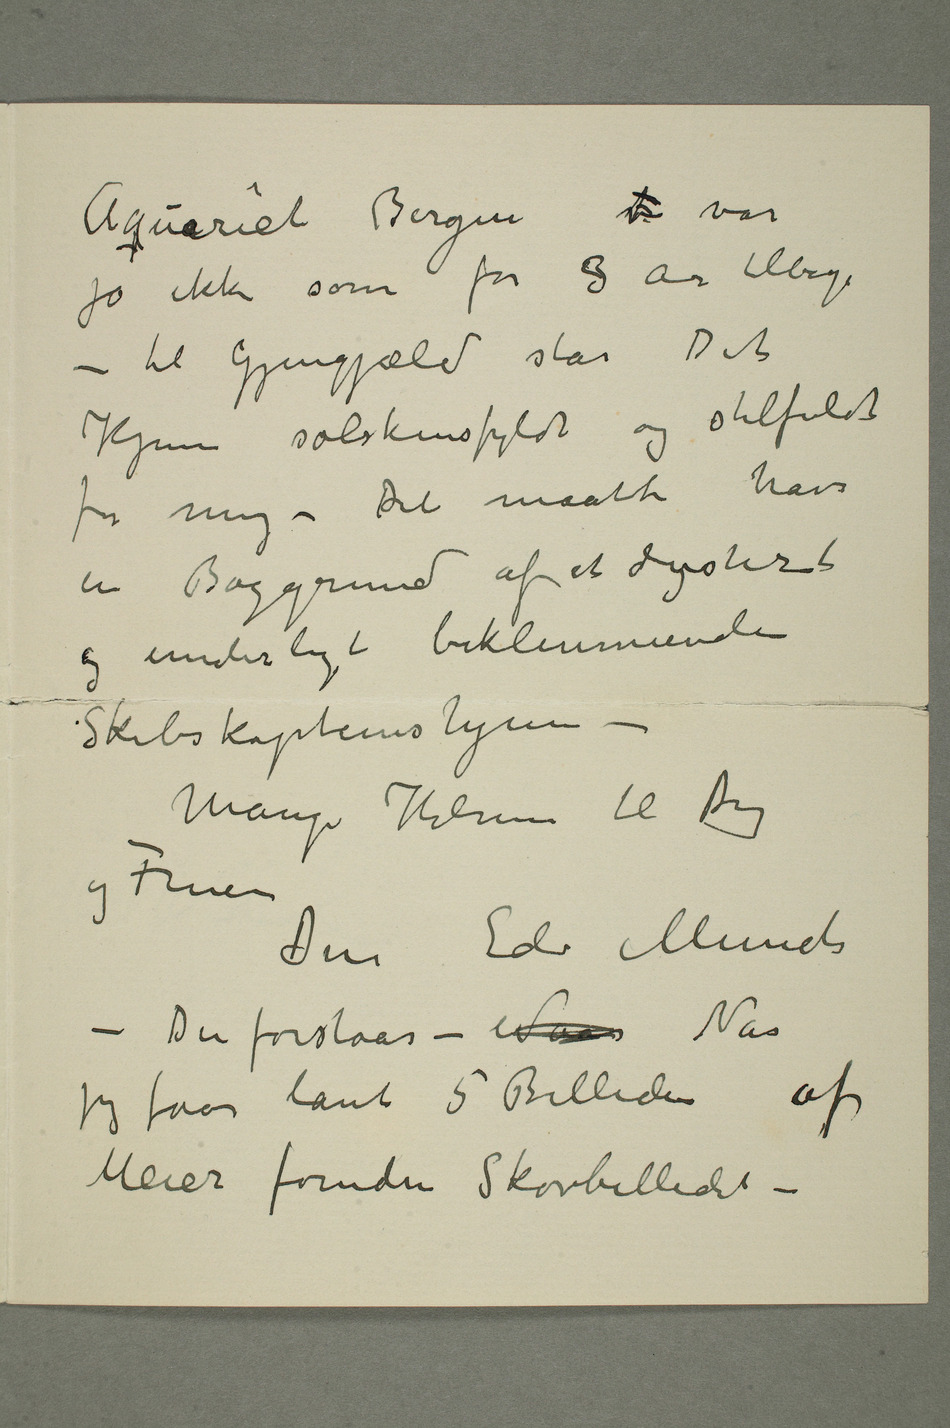 Aquariet Bergen var
jo ikke som for 3 Aar tilbage
– til Gjengjæld star Dit
Hjem solskinsfyldt og stilfuldt
for mig – Det maatte have
en Baggrund af et dystert
og underligt beklemmende
Skibskapteinshjem –
Mange Hilsener til Dig
og Fruen
Din Edv Munch
– Du forstaar – Naar
jeg faar laant 5 Billeder af
Meier foruden Skovbilledet –